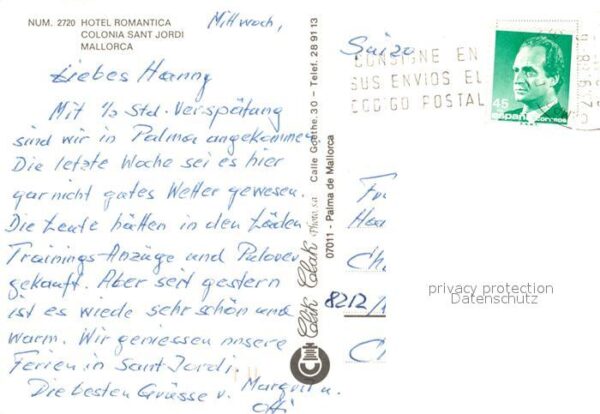 NUM. 2720 HOTEL ROMANTICA
COLONIA SANT JORDI
MALLORCA
Mittwoch,
Liebes Hanny
Mit 1/2 Std. Verspätung
sind wir in Palma angekommen
Die letzte Woche sei es hier
gar nicht gutes Wetter gewesen.
Die Leute hätten in den Läden
Trainings-Anzüge und Pulover
gekauft. Aber seit gestern
ist es wiede sehr schön und
warm. Wir geniessen unsere
Ferien in Sant Jordi.
Die besten Grüsse v. Margrit u.
Clik Clak Photo, s.a. Calle Goethe, 30 - Telef. 28 91 13
07011 - Palma de Mallorca
Suiza
CONSIGNE EN
SUS ENVIOS EL
CODIGO POSTAL
45
españa correos
8212/
privacy protection
Datenschutz